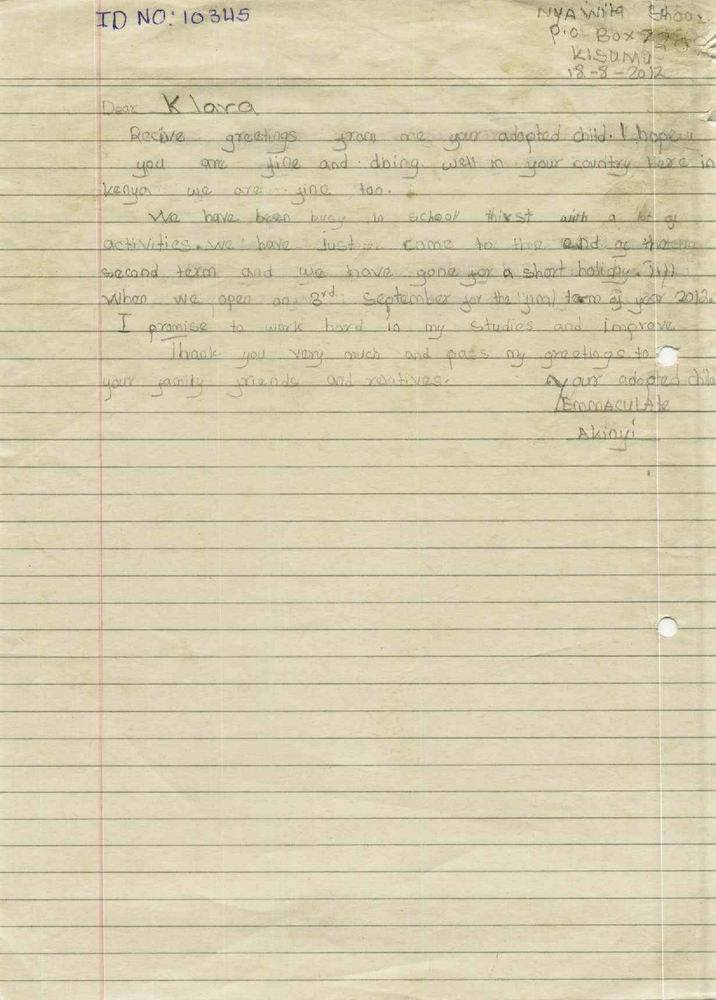 ID NO: 10345
NYAWita Schoo
P.O Box
KISUMU
18-8-2012
Dear Klara
Recive greetings from me your adopted child. I hope
you are fine and doing well in your country here in
kenya we are fine too.
We have been busy in school thirst with a lot of
activities. We have just come to the end of
second term and we have gone for a short holiday.
When we open on 3rd September for the final term of year 2012.
I promise to work hard in my studies and improve
Thank you very much and pass my greetings to
your family friends and relatives.
Your adopted child
EMMACULATE
Akinyi